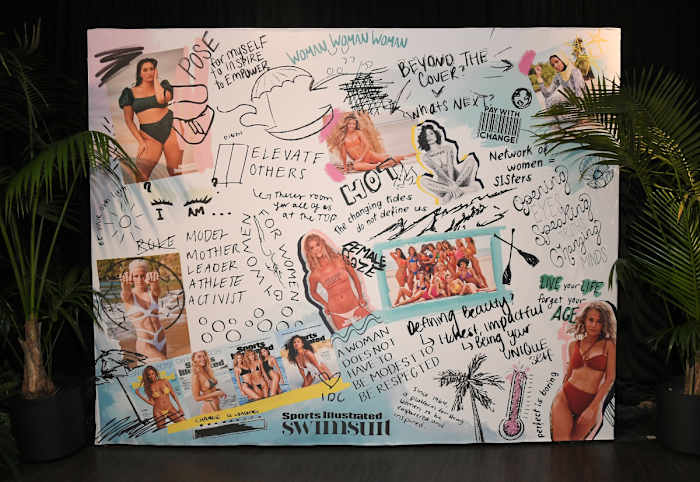 POSE
for MYSELF
to INSPIRE
to EMPOWER
WOMAN, WOMAN WOMAN
BEYOND THE
COVER?
WHATS NEXT?
PAY WITH
CHANGE!
ELEVATE
OTHERS
↳ theres room
for all of us
at the TOP
HOT
The changing tides
do not define us
Network of
women =
SISters
Opening
EYES
Speaking
Changing
MINDS
I AM...
ROLE MODEL
MOTHER
LEADER
ATHLETE
ACTIVIST
FOR WOMEN
BY WOMEN
FEMALE
GAZE
LIVE your LIFE
forget your
AGE
Defining Beauty?
↳ Honest, impactful
↳ Being your
UNIQUE
self
A WOMAN
DOES NOT
HAVE TO
BE MODEST TO
BE RESPECTED
a platform for
women to be
empowered and
inspired.
perfect is boring
CHANGE IS COMING
Sports Illustrated
swimsuit